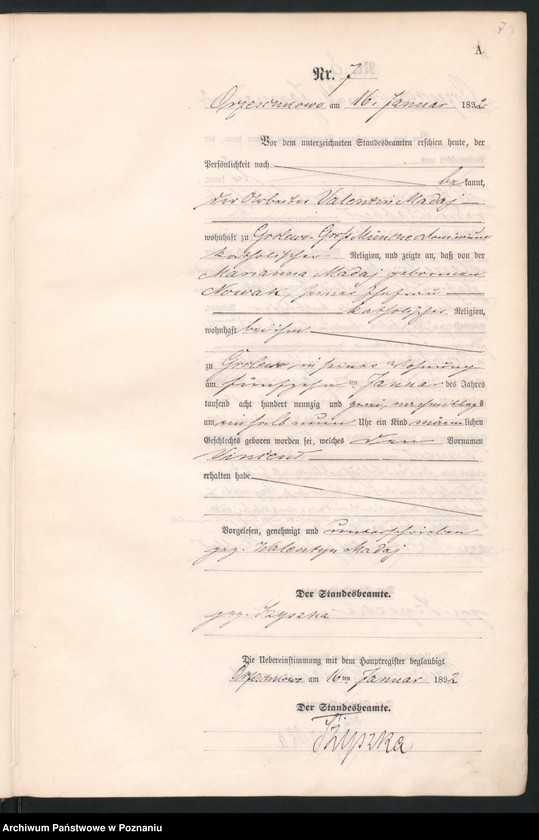 A.
Nr. 7
am 16. Januar 1892
Vor dem unterzeichneten Standesbeamten erschien heute, der
Persönlichkeit nach
kannt,
der Arbeiter Valentin Madaj
wohnhaft zu Grolewo
katholischer Religion, und zeigte an, daß von der
Marianna Madaj geborenen
Nowak, seiner Ehefrau
katholischer Religion,
wohnhaft bei ihm
zu Grolewo in seiner Wohnung
am fünfzehnten Januar des Jahres
tausend acht hundert neunzig und zwei, nachmittags
um Uhr ein Kind männlichen
Geschlechts geboren worden sei, welches den Vornamen
Vincent
erhalten habe
Vorgelesen, genehmigt und unterschrieben
gez. Valentyn Madaj
Der Standesbeamte.
gez.
Die Uebereinstimmung mit dem Hauptregister beglaubigt
am 16ten Januar 1892
Der Standesbeamte.
Archiwum Państwowe w Poznaniu